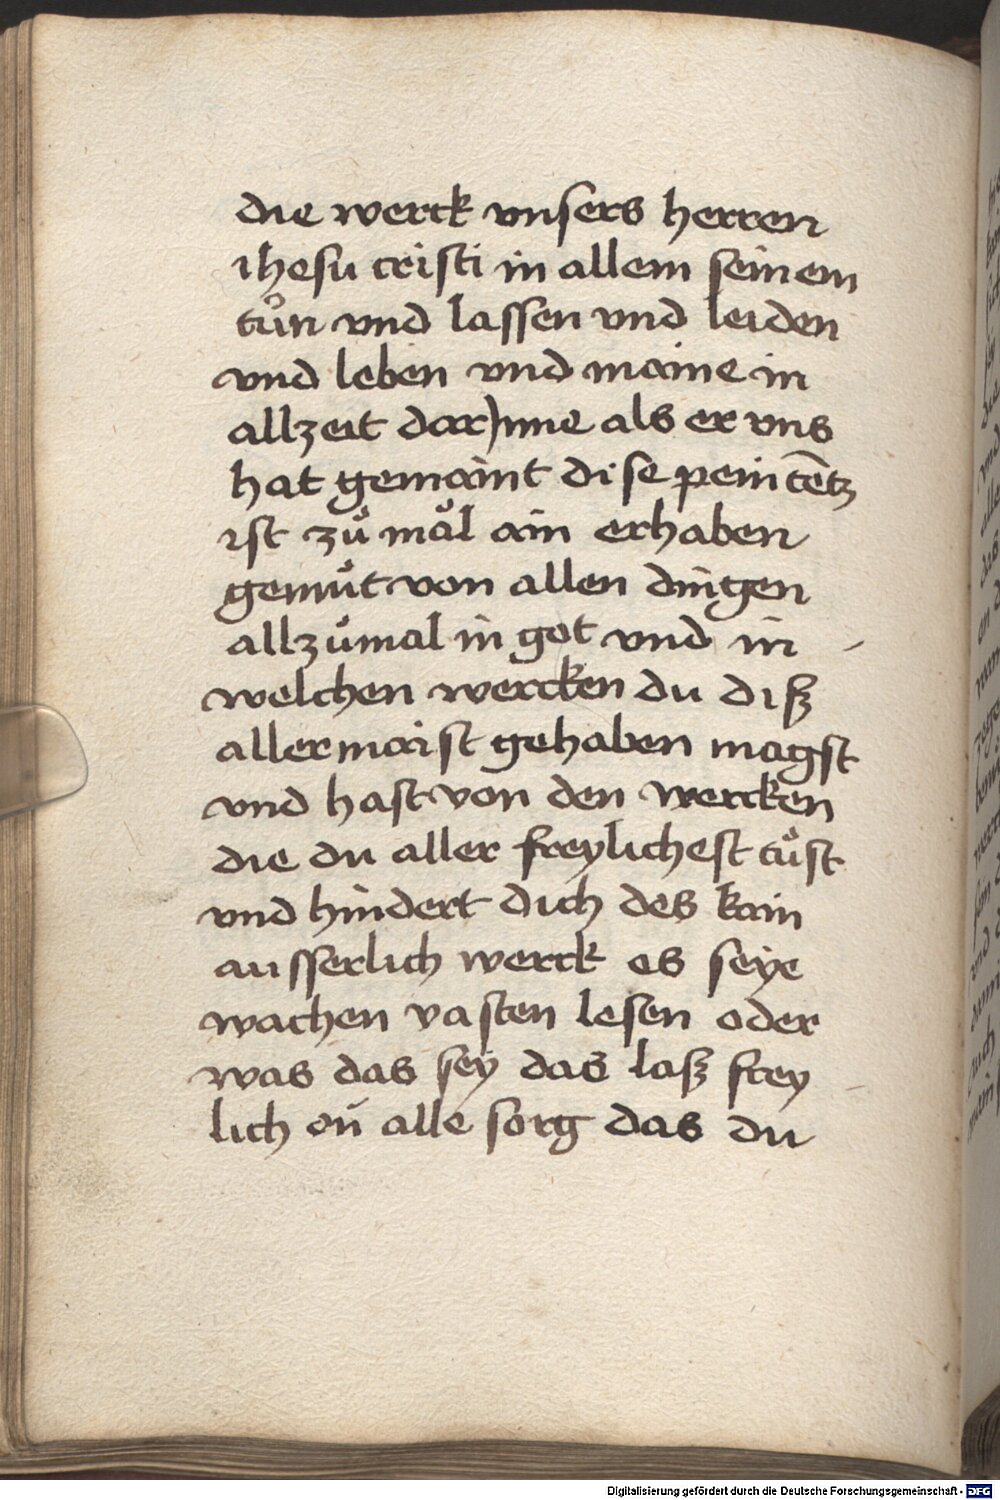 die werck vnsers herren
ihesu cristi in allem seinem
tůn vnd lassen vnd leiden
vnd leben vnd maine in
allzeit darJnne als er vns
hat gemaint dise penitētz
ist zů mǎl ain erhaben
gemůt von allen dingen
allzůmal in got vnd in
welchen wercken du diß
allermaist gehaben magst
vnd hast von den wercken
die du aller freylichest tůst
vnd hindert dich des kain
ausserlich werck es seye
wachen vasten lesen oder
was das sey das laß frey
lich on alle sorg das du
Digitalisierung gefördert durch die Deutsche Forschungsgemeinschaft - DFG